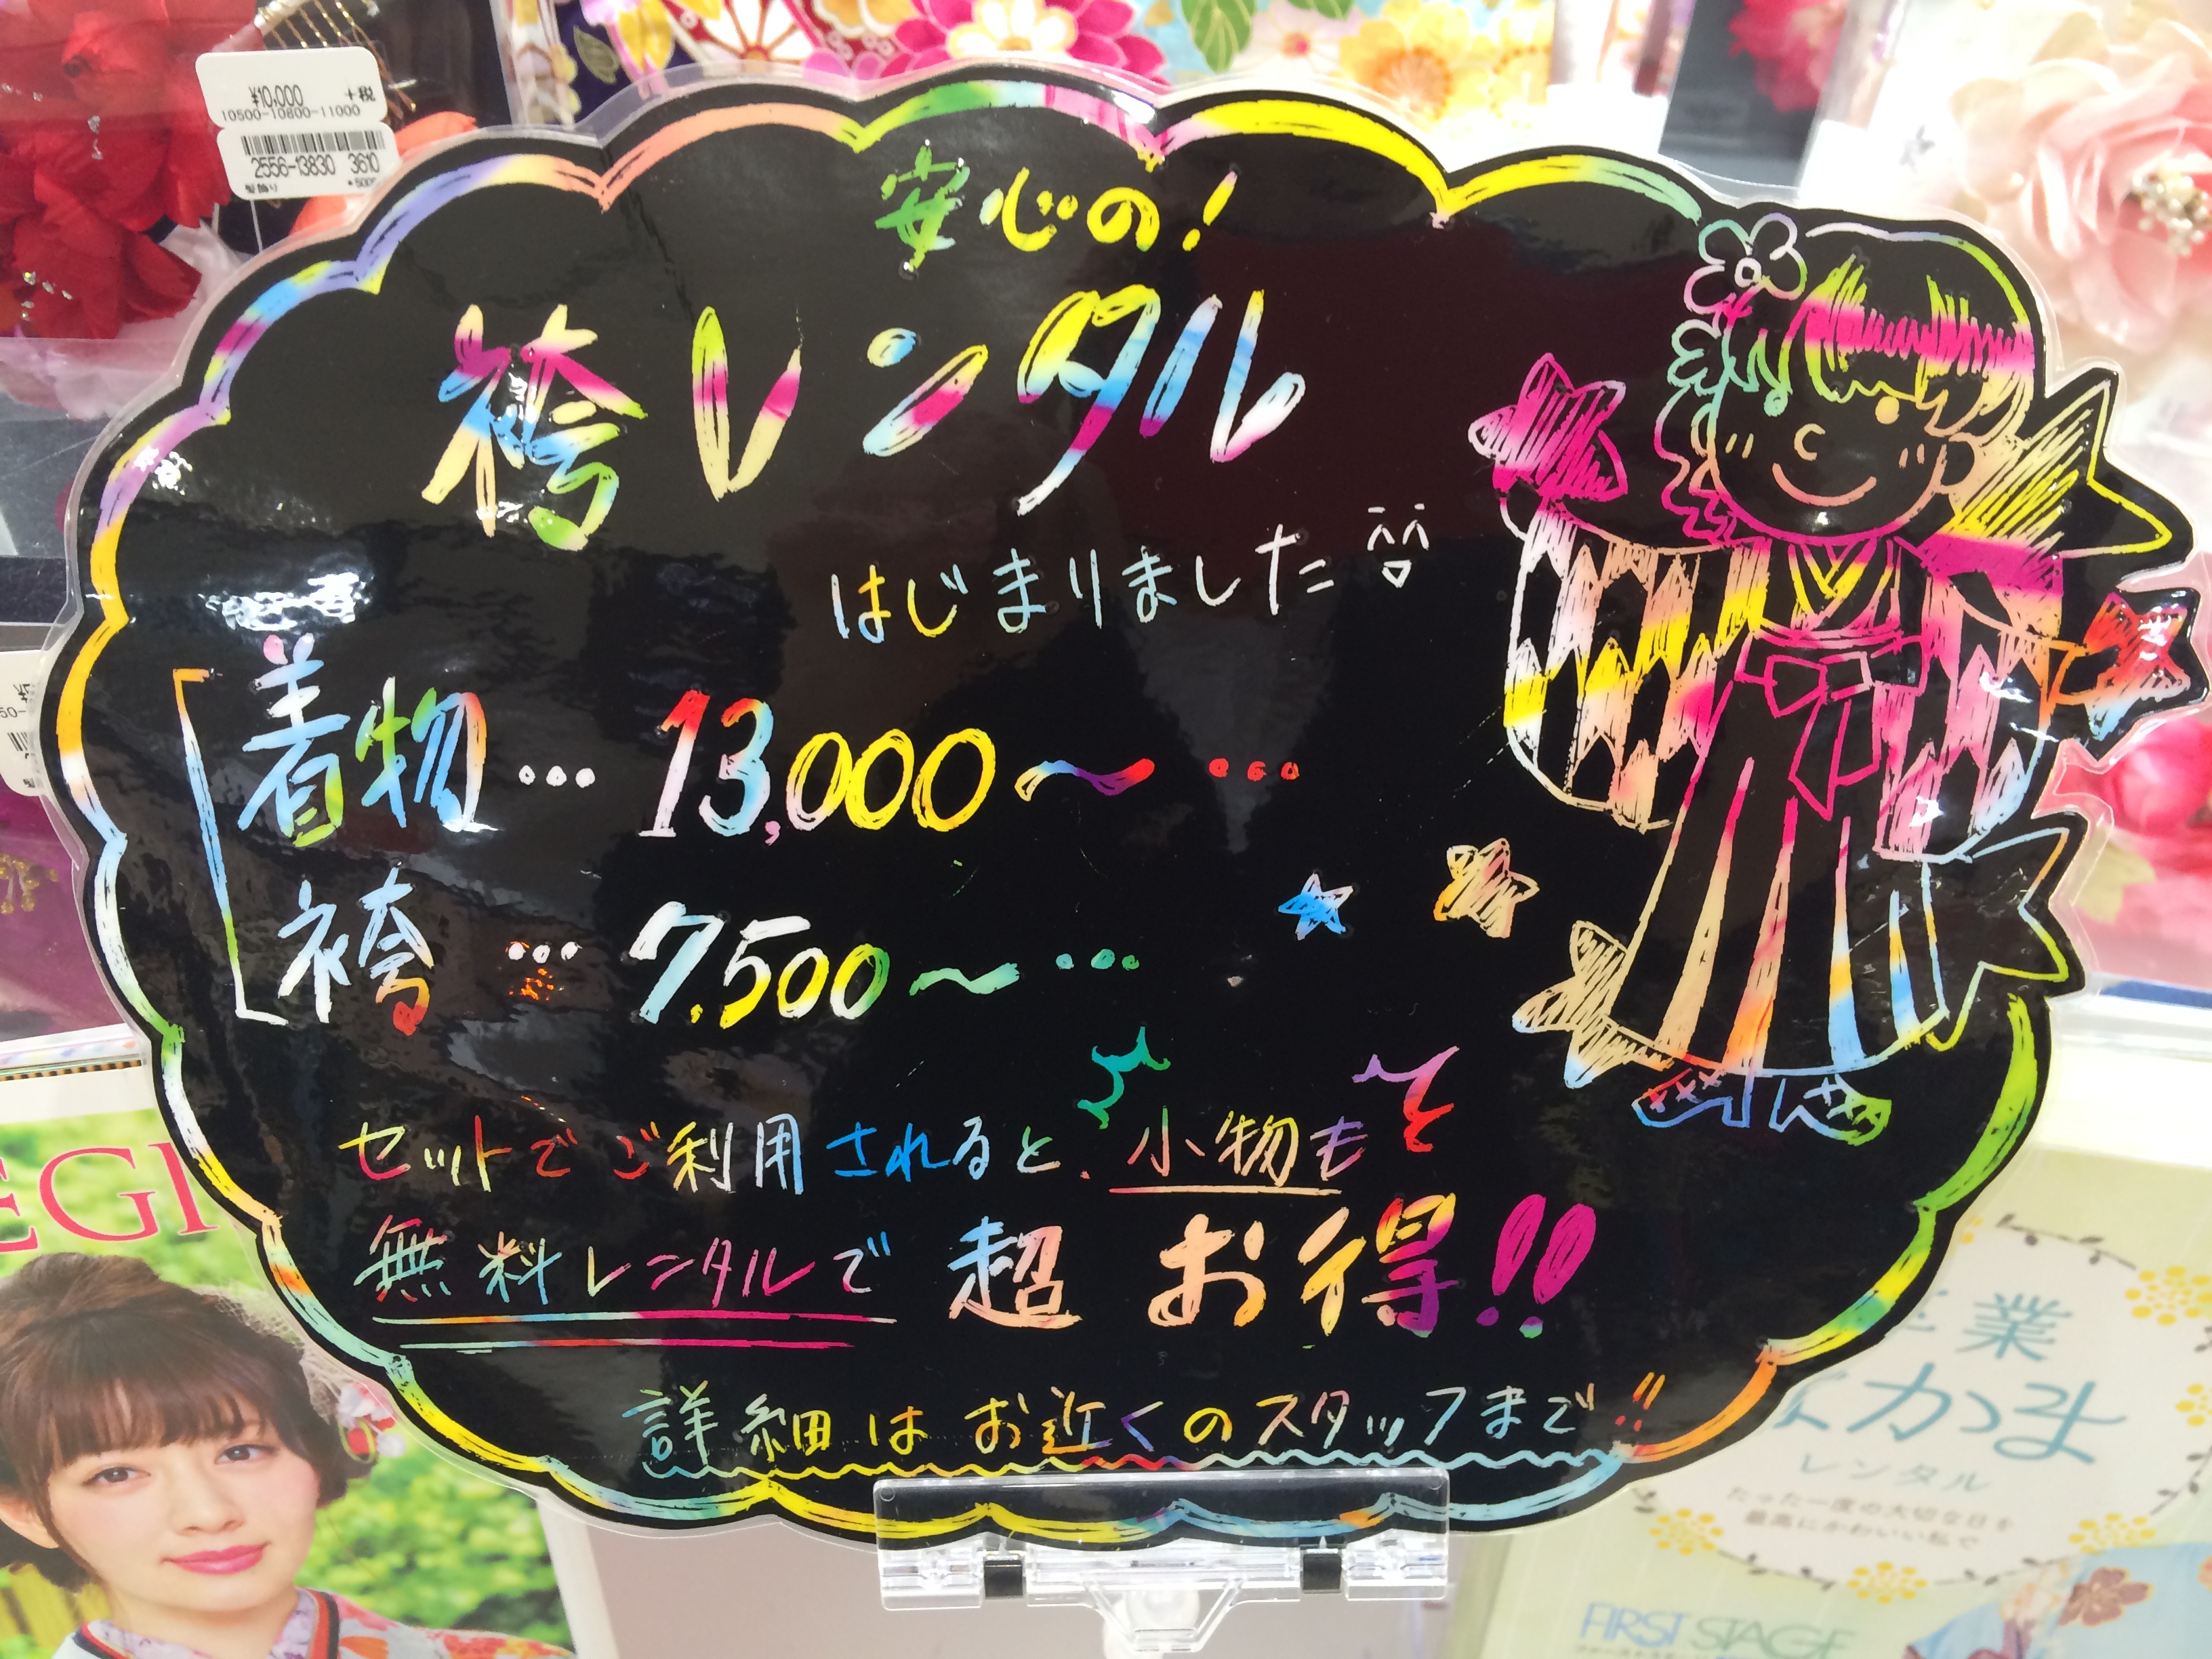 ¥10,000 +税
10500-10800-11000
2556-13830 3610
髪飾り
安心の!
袴レンタル
はじまりました
着物…13,000〜…
袴…7.500〜…
セットでご利用されると、小物も
無料レンタルで超お得!!
詳細はお近くのスタッフまで!!
EGI
業
はかま
レンタル
たった一度の大切な日を
最高にかわいい私で
FIRST STAGE